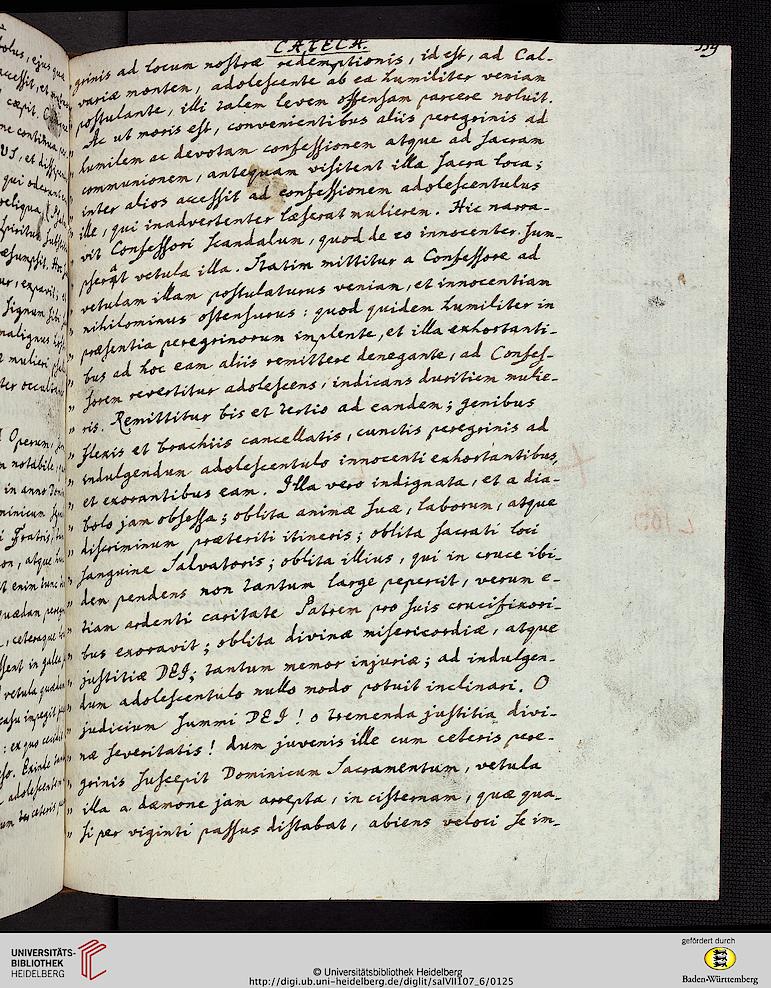 CATECH.
119
grinis ad locum nostræ redemptionis, id est, ad Cal-
variæ montem, adolescente ab ea humiliter veniam
postulante, illi talem levem offensam parcere noluit.
" Ac ut moris est, convenientibus aliis peregrinis ad
" humilem ac devotam confessionem atque ad sacram
" communionem, antequam visitent illa sacra loca;
" inter alios accessit ad confessionem adolescentulus
" ille, qui inadvertenter læserat mulierem. Hic narra-
" vit Confessori scandalum, quod de eo innocenter sum-
" pserat vetula illa. Statim mittitur a Confessore ad
" vetulam illam postulaturus veniam, et innocentiam
" nihilominus ostensurus: quod quidem humiliter in
" præsentia peregrinorum implente, et illa exhortanti-
" bus ad hoc eam aliis remittere denegante, ad Confes-
" sorem revertitur adolescens, indicans duritiem mulie-
" ris. Remittitur bis et tertio ad eandem; genibus
" flexis et brachiis cancellatis, cunctis peregrinis ad
" indulgendum adolescentulo innocenti exhortantibus,
" et exorantibus eam. Illa vero indignata, et a dia-
" bolo jam obsessa; oblita animæ suæ, laborum, atque
" discriminum præteriti itineris; oblita sacrati loci
" sanguine Salvatoris; oblita illius, qui in cruce ibi-
" dem pendens non tantum large pepercit, verum e-
" tiam ardenti caritate Patrem pro suis crucifixori-
" bus exoravit; oblita divinæ misericordiæ, atque
" justitiæ DEI; tantum memor injuriæ; ad indulgen-
" dum adolescentulo nullo modo potuit inclinari. O
" judicium summi DEI! o tremenda justitia divi-
" næ severitatis! dum juvenis ille cum ceteris pere-
" grinis suscepit Dominicum Sacramentum, vetula
" illa a dæmone jam arrepta, in cisternam, quæ qua-
" si per viginti passus distabat, abiens veloci se im-
UNIVERSITÄTS-
BIBLIOTHEK
HEIDELBERG
© Universitätsbibliothek Heidelberg
http://digi.ub.uni-heidelberg.de/diglit/salVII107_6/0125
gefördert durch
Baden-Württemberg